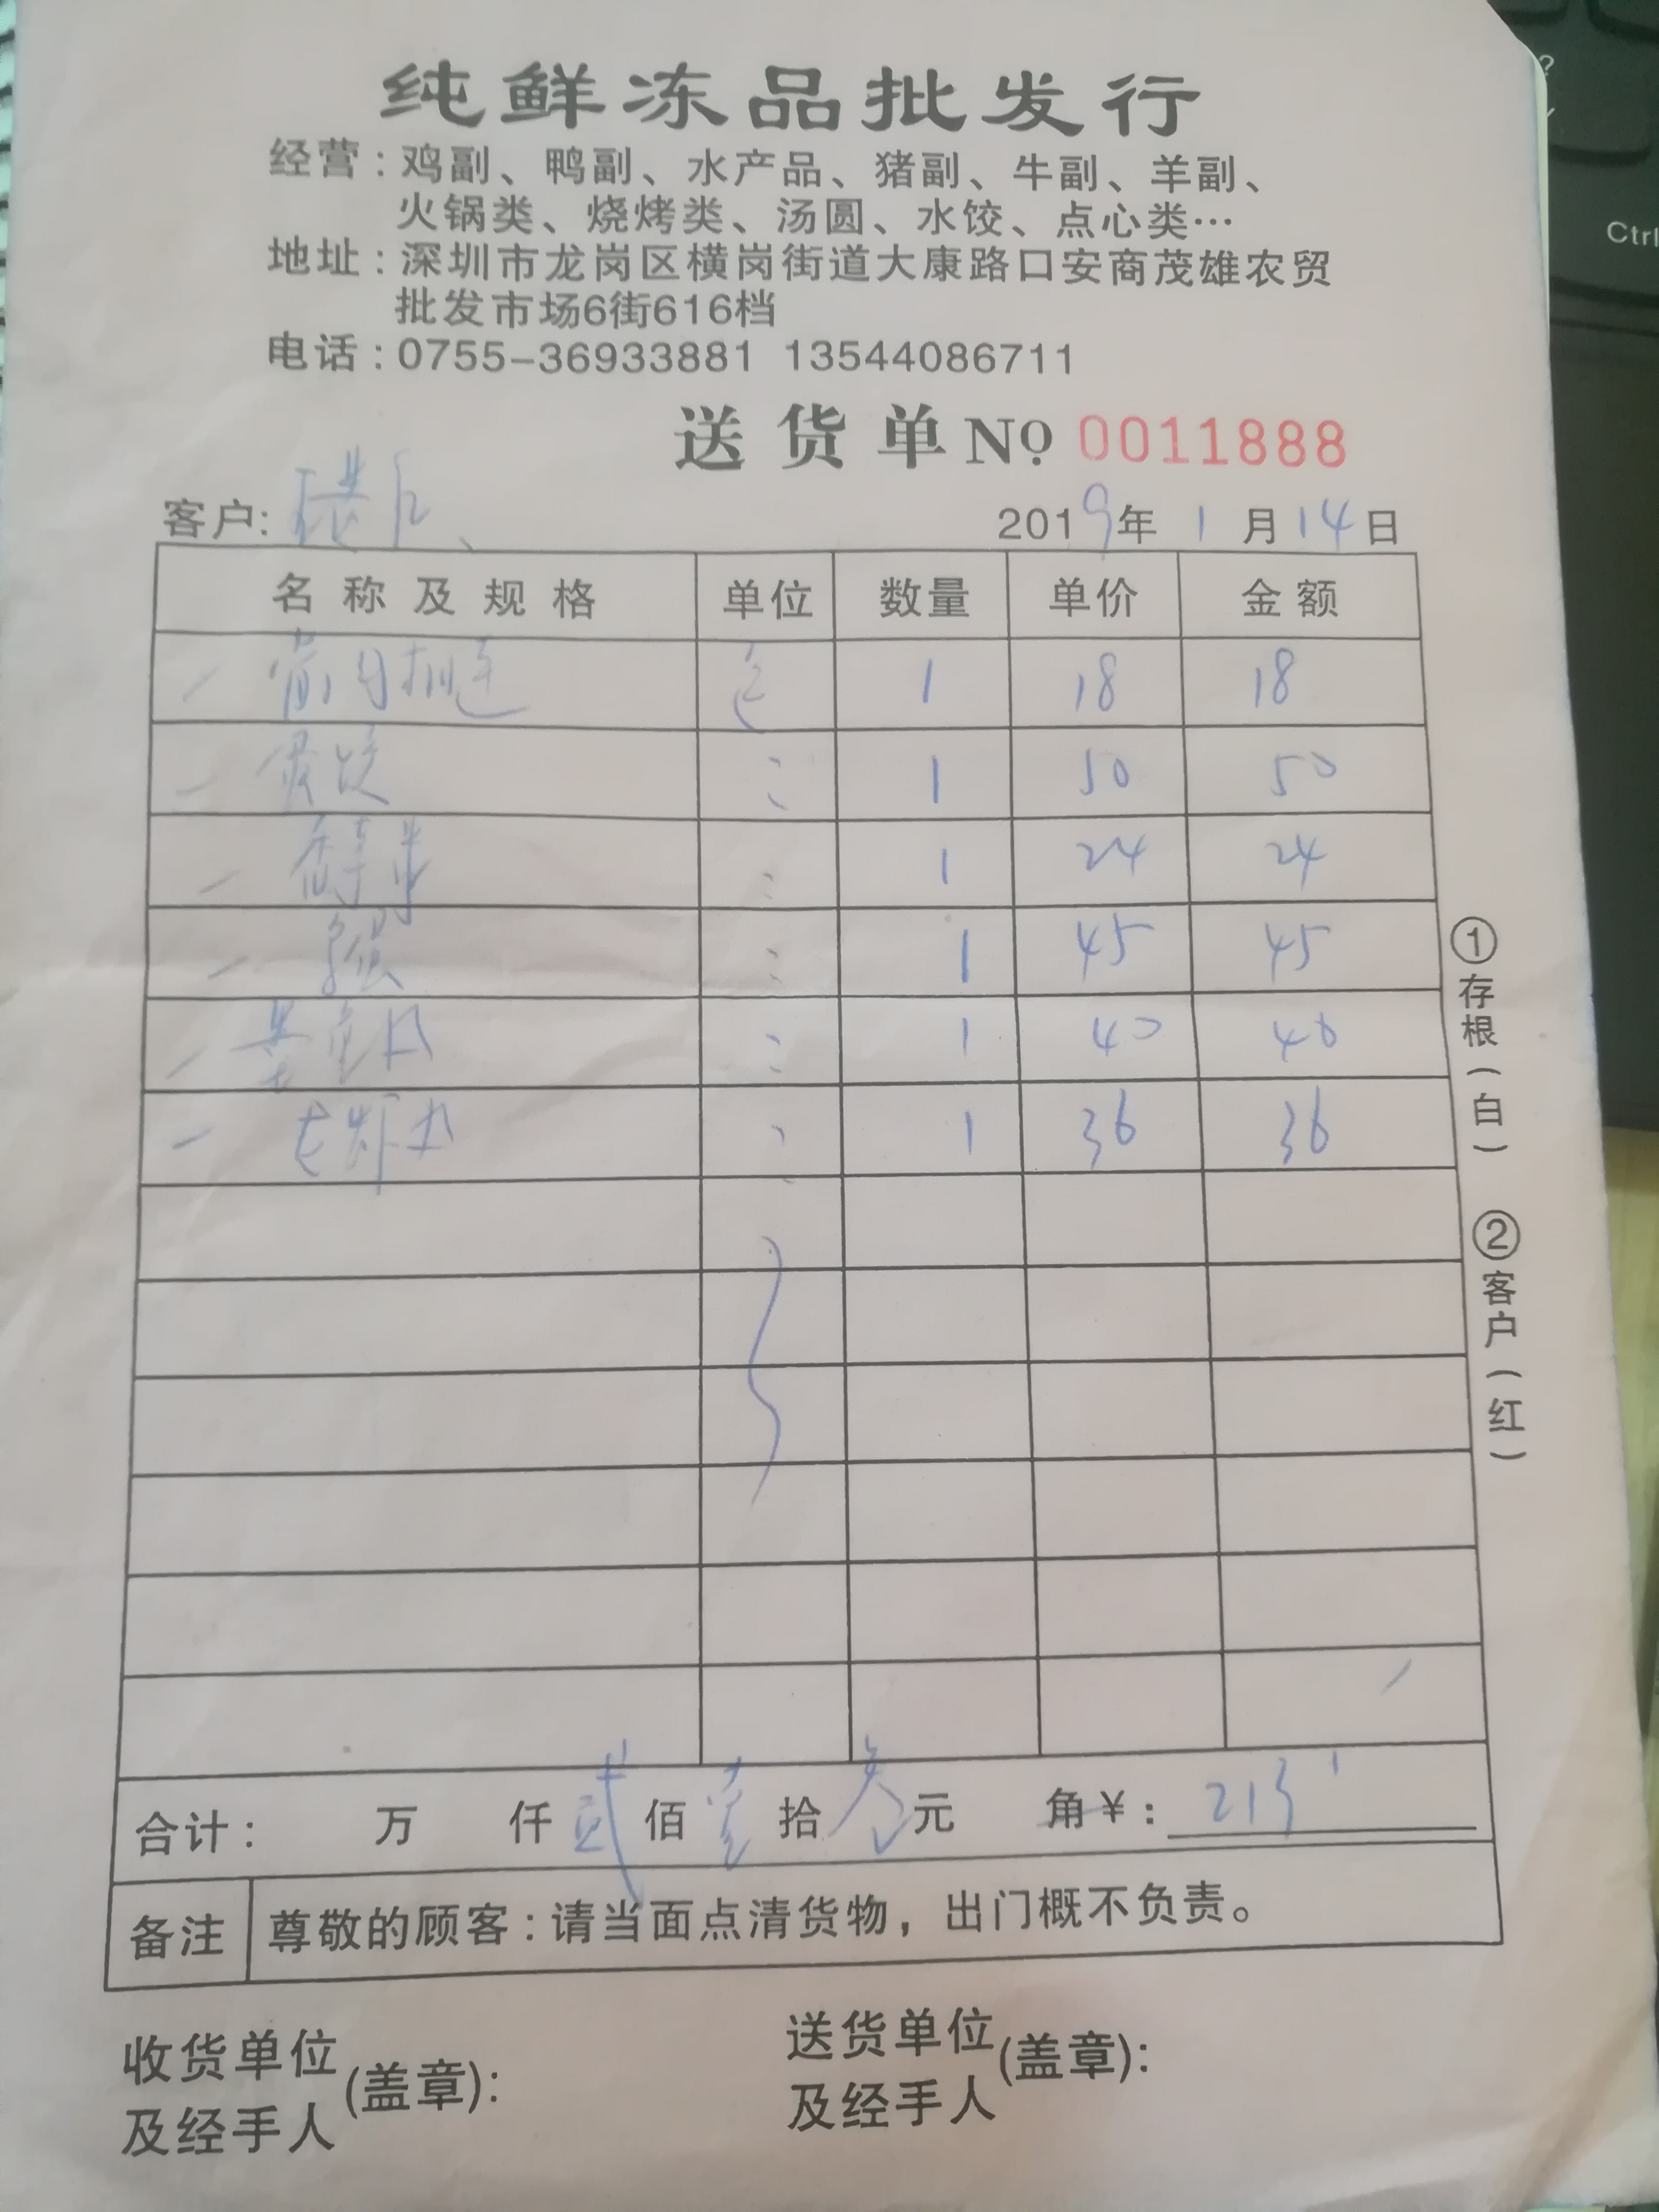 纯鲜冻品批发行
经营：鸡副、鸭副、水产品、猪副、牛副、羊副、
火锅类、烧烤类、汤圆、水饺、点心类…
地址：深圳市龙岗区横岗街道大康路口安商茂雄农贸
批发市场6街616档
电话：0755-36933881 13544086711
送货单 No 0011888
客户:
2019年 1月14日
名称及规格 单位 数量 单价 金额
1 18 18
1 50 50
1 24 24
1 45 45
1 40 40
1 36 36
①存根（白） ②客户（红）
合计： 万 仟 贰佰 壹拾 叁元 角￥：213
备注 尊敬的顾客：请当面点清货物，出门概不负责。
收货单位及经手人(盖章): 送货单位及经手人(盖章):
?
Ctrl